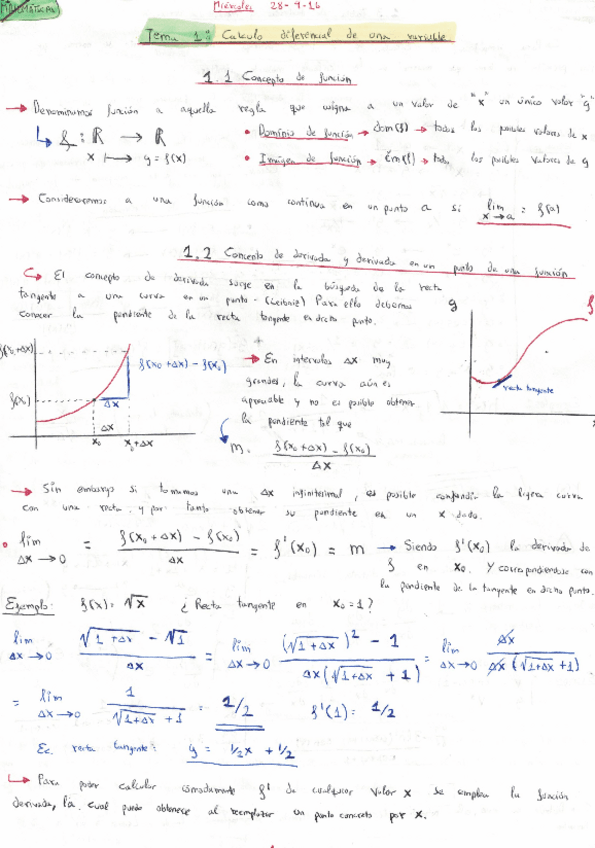 MATEMÁTICAS
Miércoles 28-9-16
Tema 1: Calculo diferencial de una variable.
1.1 Concepto de función
→ Denominamos función a aquella regla que asigna a un valor de "x" un único valor "y"
f: ℝ → ℝ
x ↦ y = f(x)
• Dominio de función → dom(f) → todos los posibles valores de x
• Imagen de función → im(f) → todos los posibles valores de y
→ Consideraremos a una función como continua en un punto a si lim x→a = f(a)
1.2 Concepto de derivada y derivada en un punto de una función
El concepto de derivada surge en la búsqueda de la recta
tangente a una curva en un punto - (Leibniz) Para ello debemos
conocer la pendiente de la recta tangente en dicho punto.
y
f
recta tangente
x
f(x₀+Δx)
f(x₀)
f(x₀+Δx) - f(x₀)
Δx
Δx
x₀
x₀+Δx
→ En intervalos Δx muy
grandes, la curva aún es
apreciable y no es posible obtener
la pendiente tal que
m = f(x₀+Δx) - f(x₀) / Δx
→ Sin embargo si tomamos una Δx infinitesimal, es posible confundir la ligera curva
con una recta y por tanto obtener su pendiente en un x dado.
• lim Δx→0 = f(x₀+Δx) - f(x₀) / Δx = f'(x₀) = m → Siendo f'(x₀) la derivada de
f en x₀. Y correspondiendose con
la pendiente de la tangente en dicho punto.
Ejemplo: f(x) = √x ¿Recta tangente en x₀=1?
lim Δx→0 √1+Δx - √1 / Δx = lim Δx→0 (√1+Δx)² - 1 / Δx(√1+Δx + 1) = lim Δx→0 Δx / Δx(√1+Δx +1)
= lim Δx→0 1 / √1+Δx + 1 = 1/2 f'(1) = 1/2
Ec. recta tangente: y = 1/2x + 1/2
Para poder calcular cómodamente f' de cualquier valor x se emplea la función
derivada, la cual puede obtenerse al reemplazar un punto concreto por x.